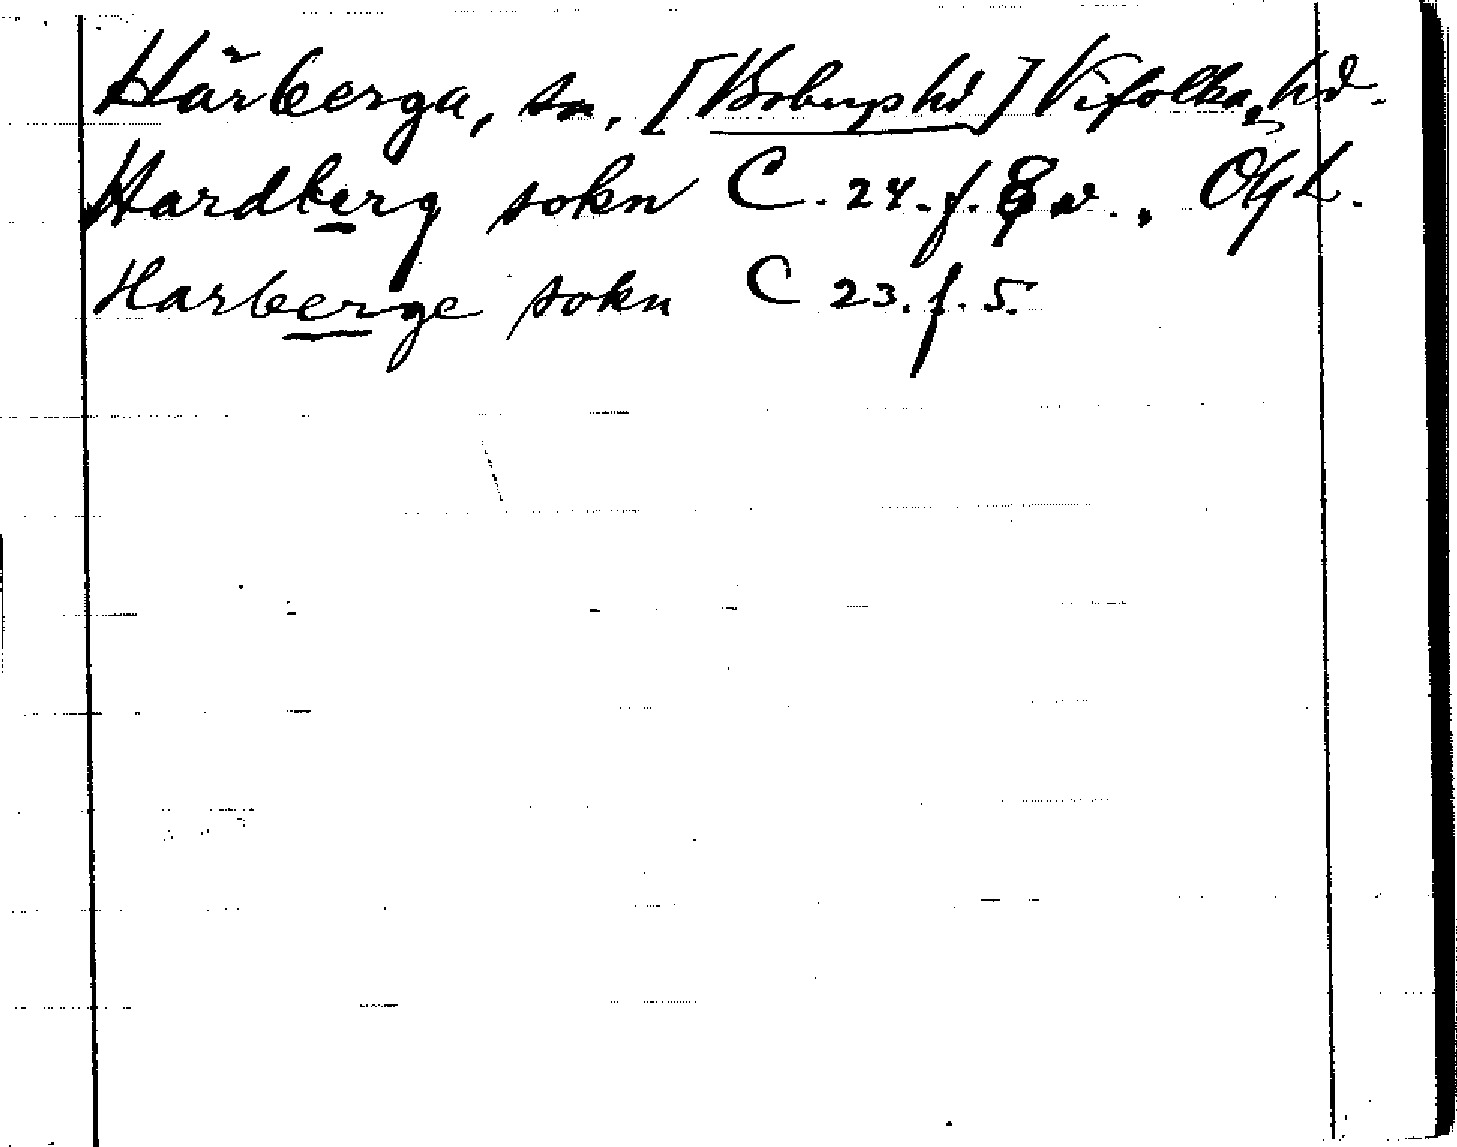 Härberga, sn, [Bobergs hd] Vifolka hd.
Hardberg sokn C. 24. f. 8 v., ÖgL.
Harberge sokn C 23. f. 5.